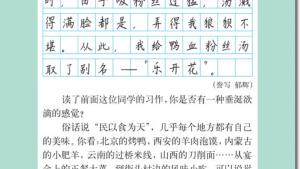 时，由于吸粉丝过猛，汤溅
得满脸都是，弄得我狼狈不
堪。从此，我给鸭血粉丝汤
取了别名——“乐开花”。
（誊写 郁辉）
读了前面这位同学的习作，你是否有一种垂涎欲
滴的感觉？
俗话说“民以食为天”，几乎每个地方都有自己
的美味。你看：北京的烤鸭，西安的羊肉泡馍，内蒙古
的小肥羊，云南的过桥米线，山西的刀削面……从宴